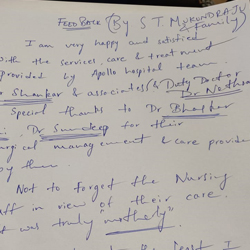 FEED BACK (By S T MUKUNDRAJU
& Family)
I am very happy and satisfied
with the services, care & treatment
provided by Apollo hospital team.
Dr Shankar & associates (& Duty Doctor
Dr
Special thanks to Dr Bhaskar
Dr Sandeep for their
surgical management & care provided
by them.
Not to forget the Nursing
staff in view of their care.
It was truly "motherly"